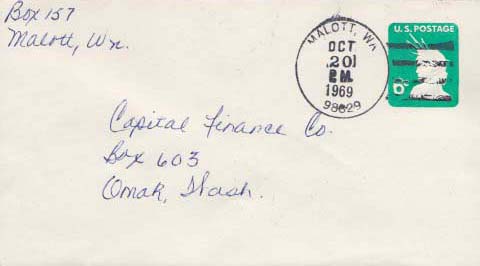 Box 157
Malott, Wn.
MALOTT, WA
OCT
20
P.M.
1969
98829
U.S. POSTAGE
6c
Capital Finance Co.
Box 603
Omak, Wash.